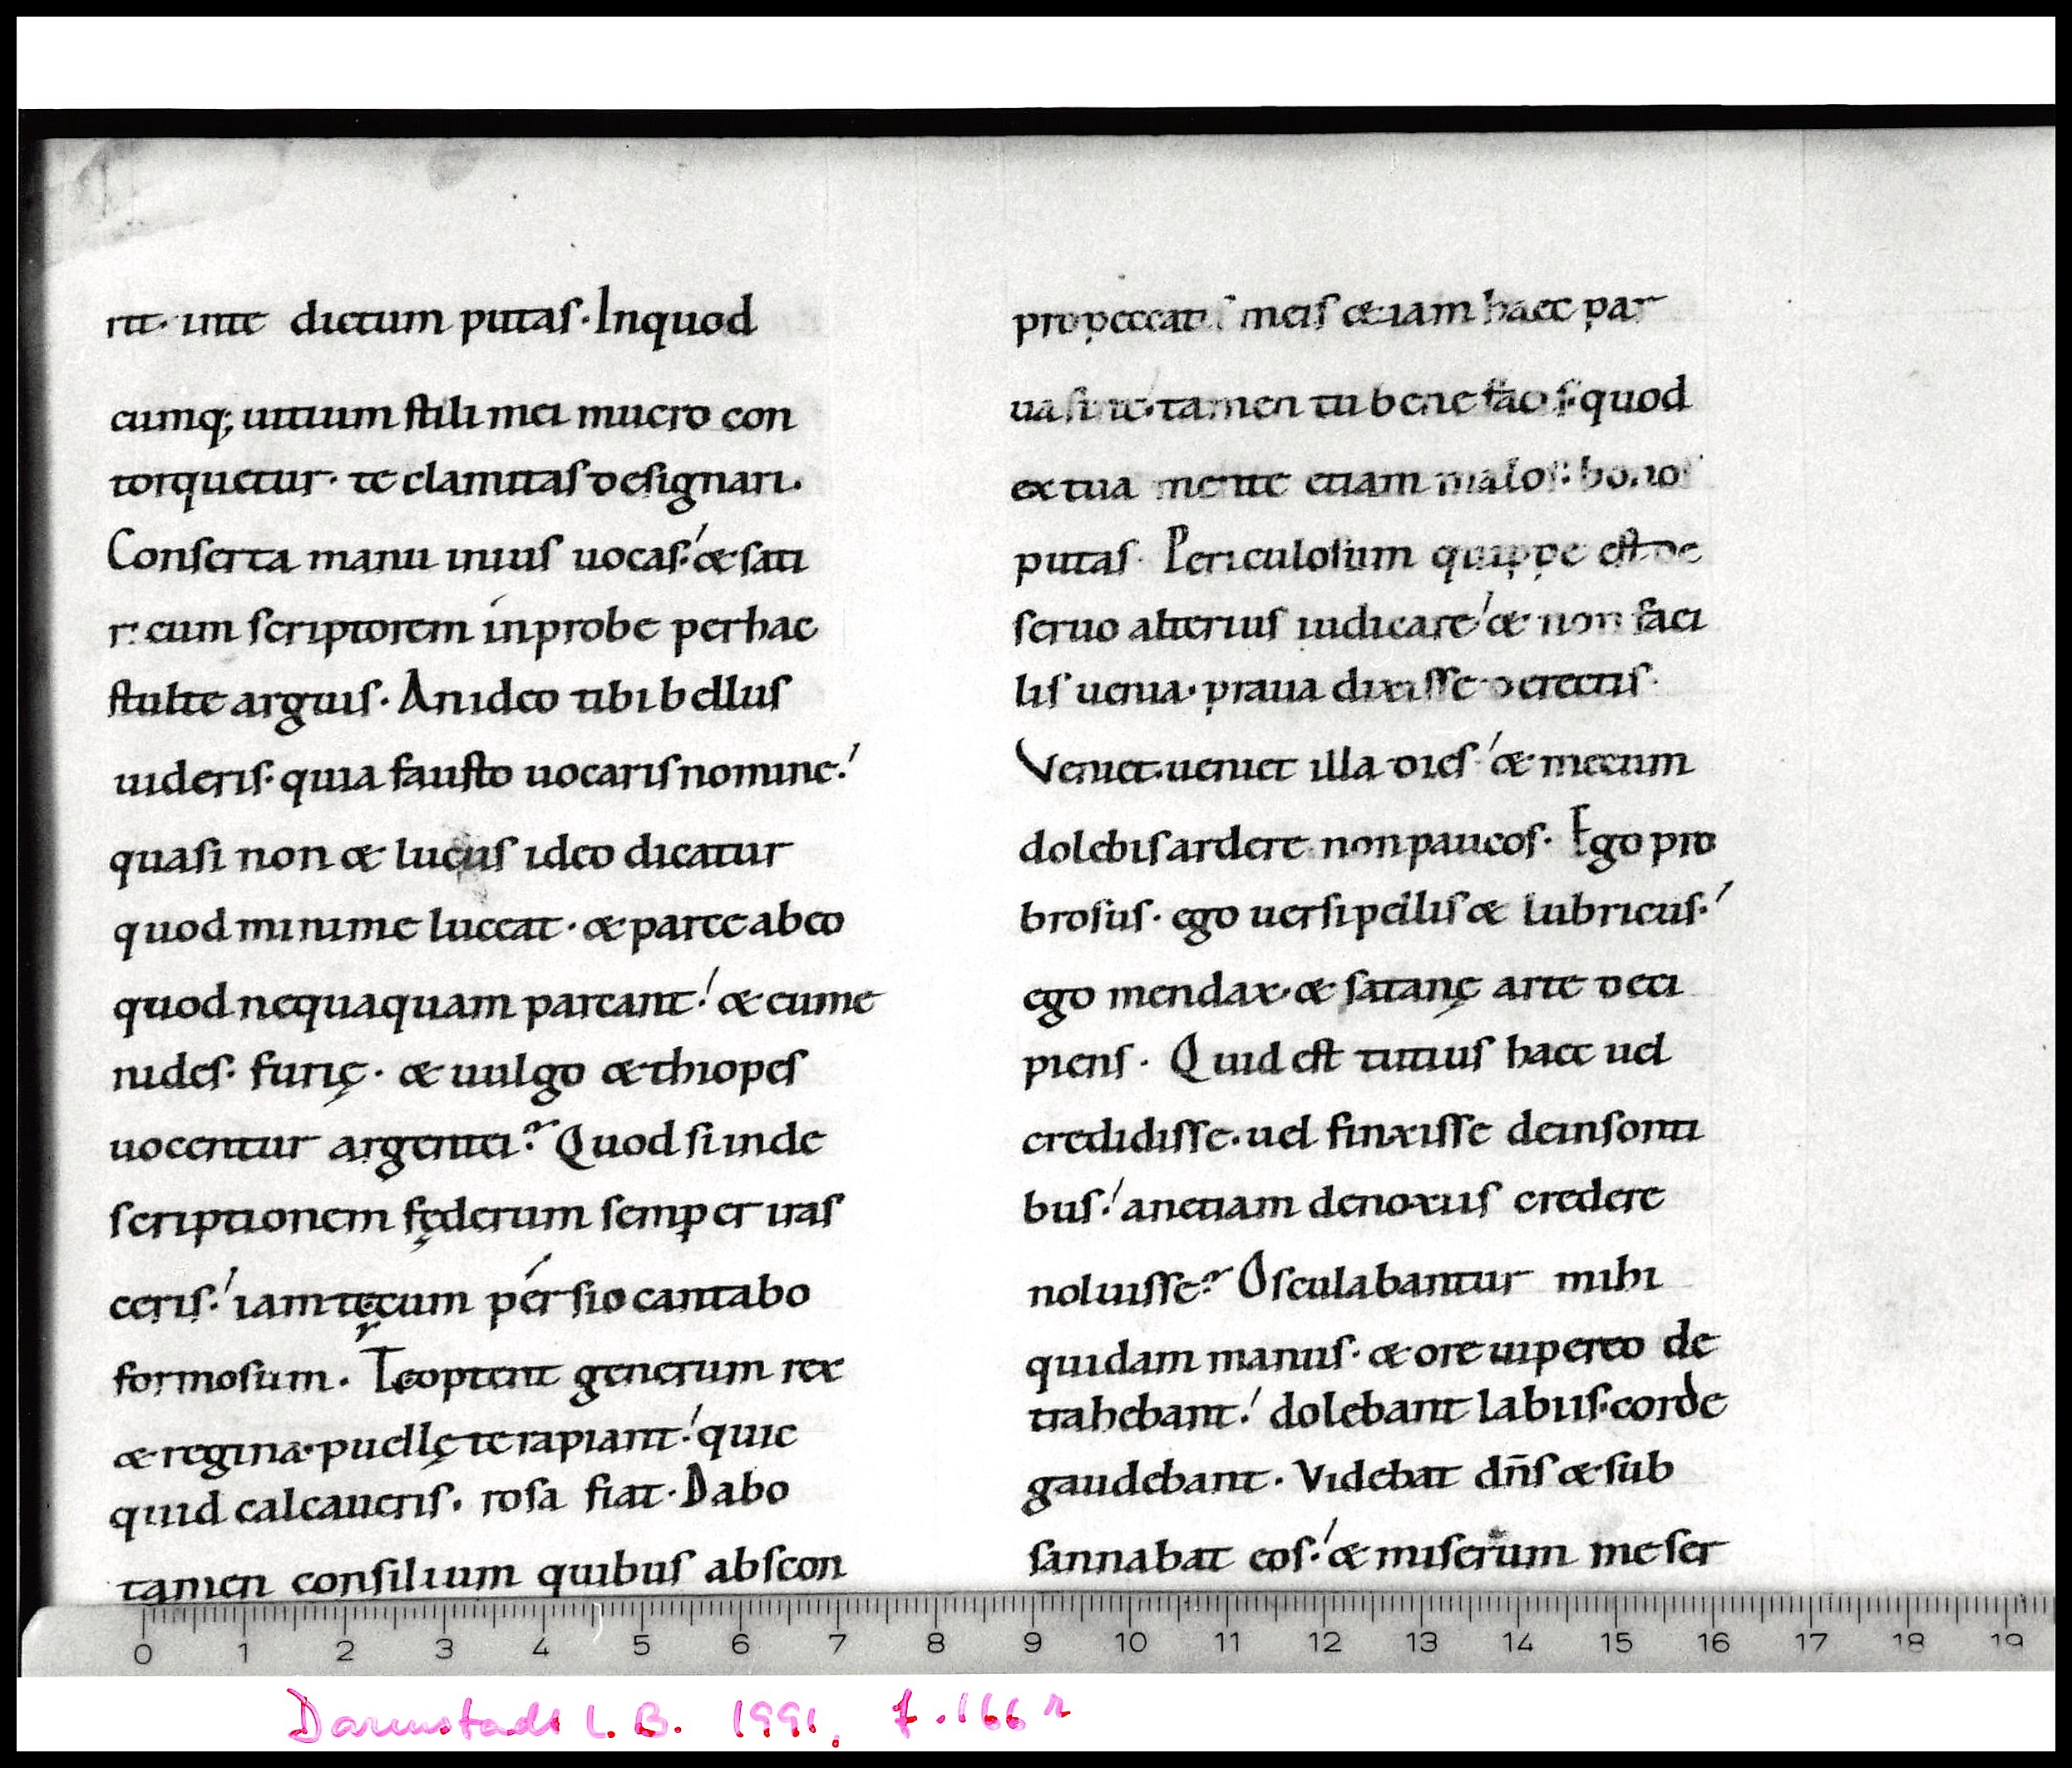 rit· inte dictum putas· Inquod
cumq; uitium stili mei mucro con
torquetur· te clamitas designari·
Conserta manu inius uocas· & sati
r· cum scriptorem inprobe perhac
stulte arguis· An ideo tibi bellus
uideris· quia fausto uocaris nomine·
quasi non & lucus ideo dicatur
quod minime luceat· & parce ab eo
quod nequaquam parcant· & eume
nides· furię· & uulgo &thiopes
uocentur argentei? Quod si inde
scriptionem fęderum semper iras
ceris· iam tęcum persio cantabo
formosum· Te optent generum rex
& regina· puellę te rapiant· quic
quid calcaueris· rosa fiat· Dabo
tamen consilium quibus abscon
pro peccatis meis &iam haec par
ua sint· tamen tu bene facis· quod
ex tua mente etiam malos· bonos
putas· Periculosum quippe est de
seruo alterius iudicare & non faci
lis uenia· praua dixisse de rectis·
Veniet· ueniet illa dies & mecum
dolebis ardere non paucos· Ego pro
brosus· ego uersipellis & lubricus·
ego mendax· & satanę arte deci
piens· Quid est tutius haec uel
credidisse· uel finxisse de insonti
bus· an etiam de noxiis credere
noluisse? Osculabantur mihi
quidam manus· & ore uipereo de
trahebant· dolebant labiis· corde
gaudebant· Videbat dn̄s & sub
sannabat eos· & miserum me ser
0 1 2 3 4 5 6 7 8 9 10 11 12 13 14 15 16 17 18 19
Darmstadt L.B. 1991, f. 166 r